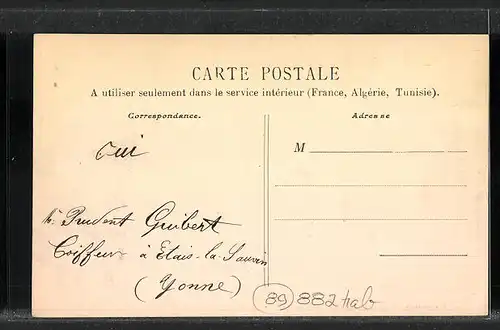 CARTE POSTALE
A utiliser seulement dans le service intérieur (France, Algérie, Tunisie).
Correspondance.
Adresse
oui
M
Mr Prudent Guibert
Coiffeur à Etais-la-Sauvin
(Yonne)
(89) 882 hab